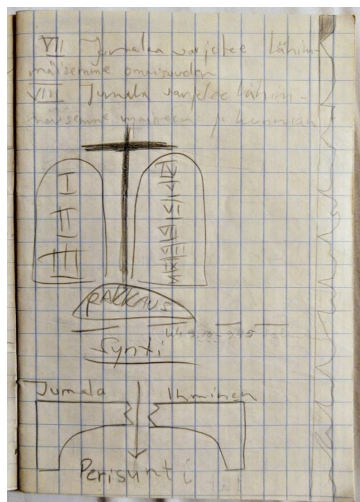 VII Jumala varjelee lähim-
mäisemme omaisuuden
VIII Jumala varjelee lähim-
mäisemme maineen ja kunnian
I
II
III
IV
V
VI
VII
VIII
IX
X
RAKKAUS
Synti
Jumala Ihminen
Perisynti